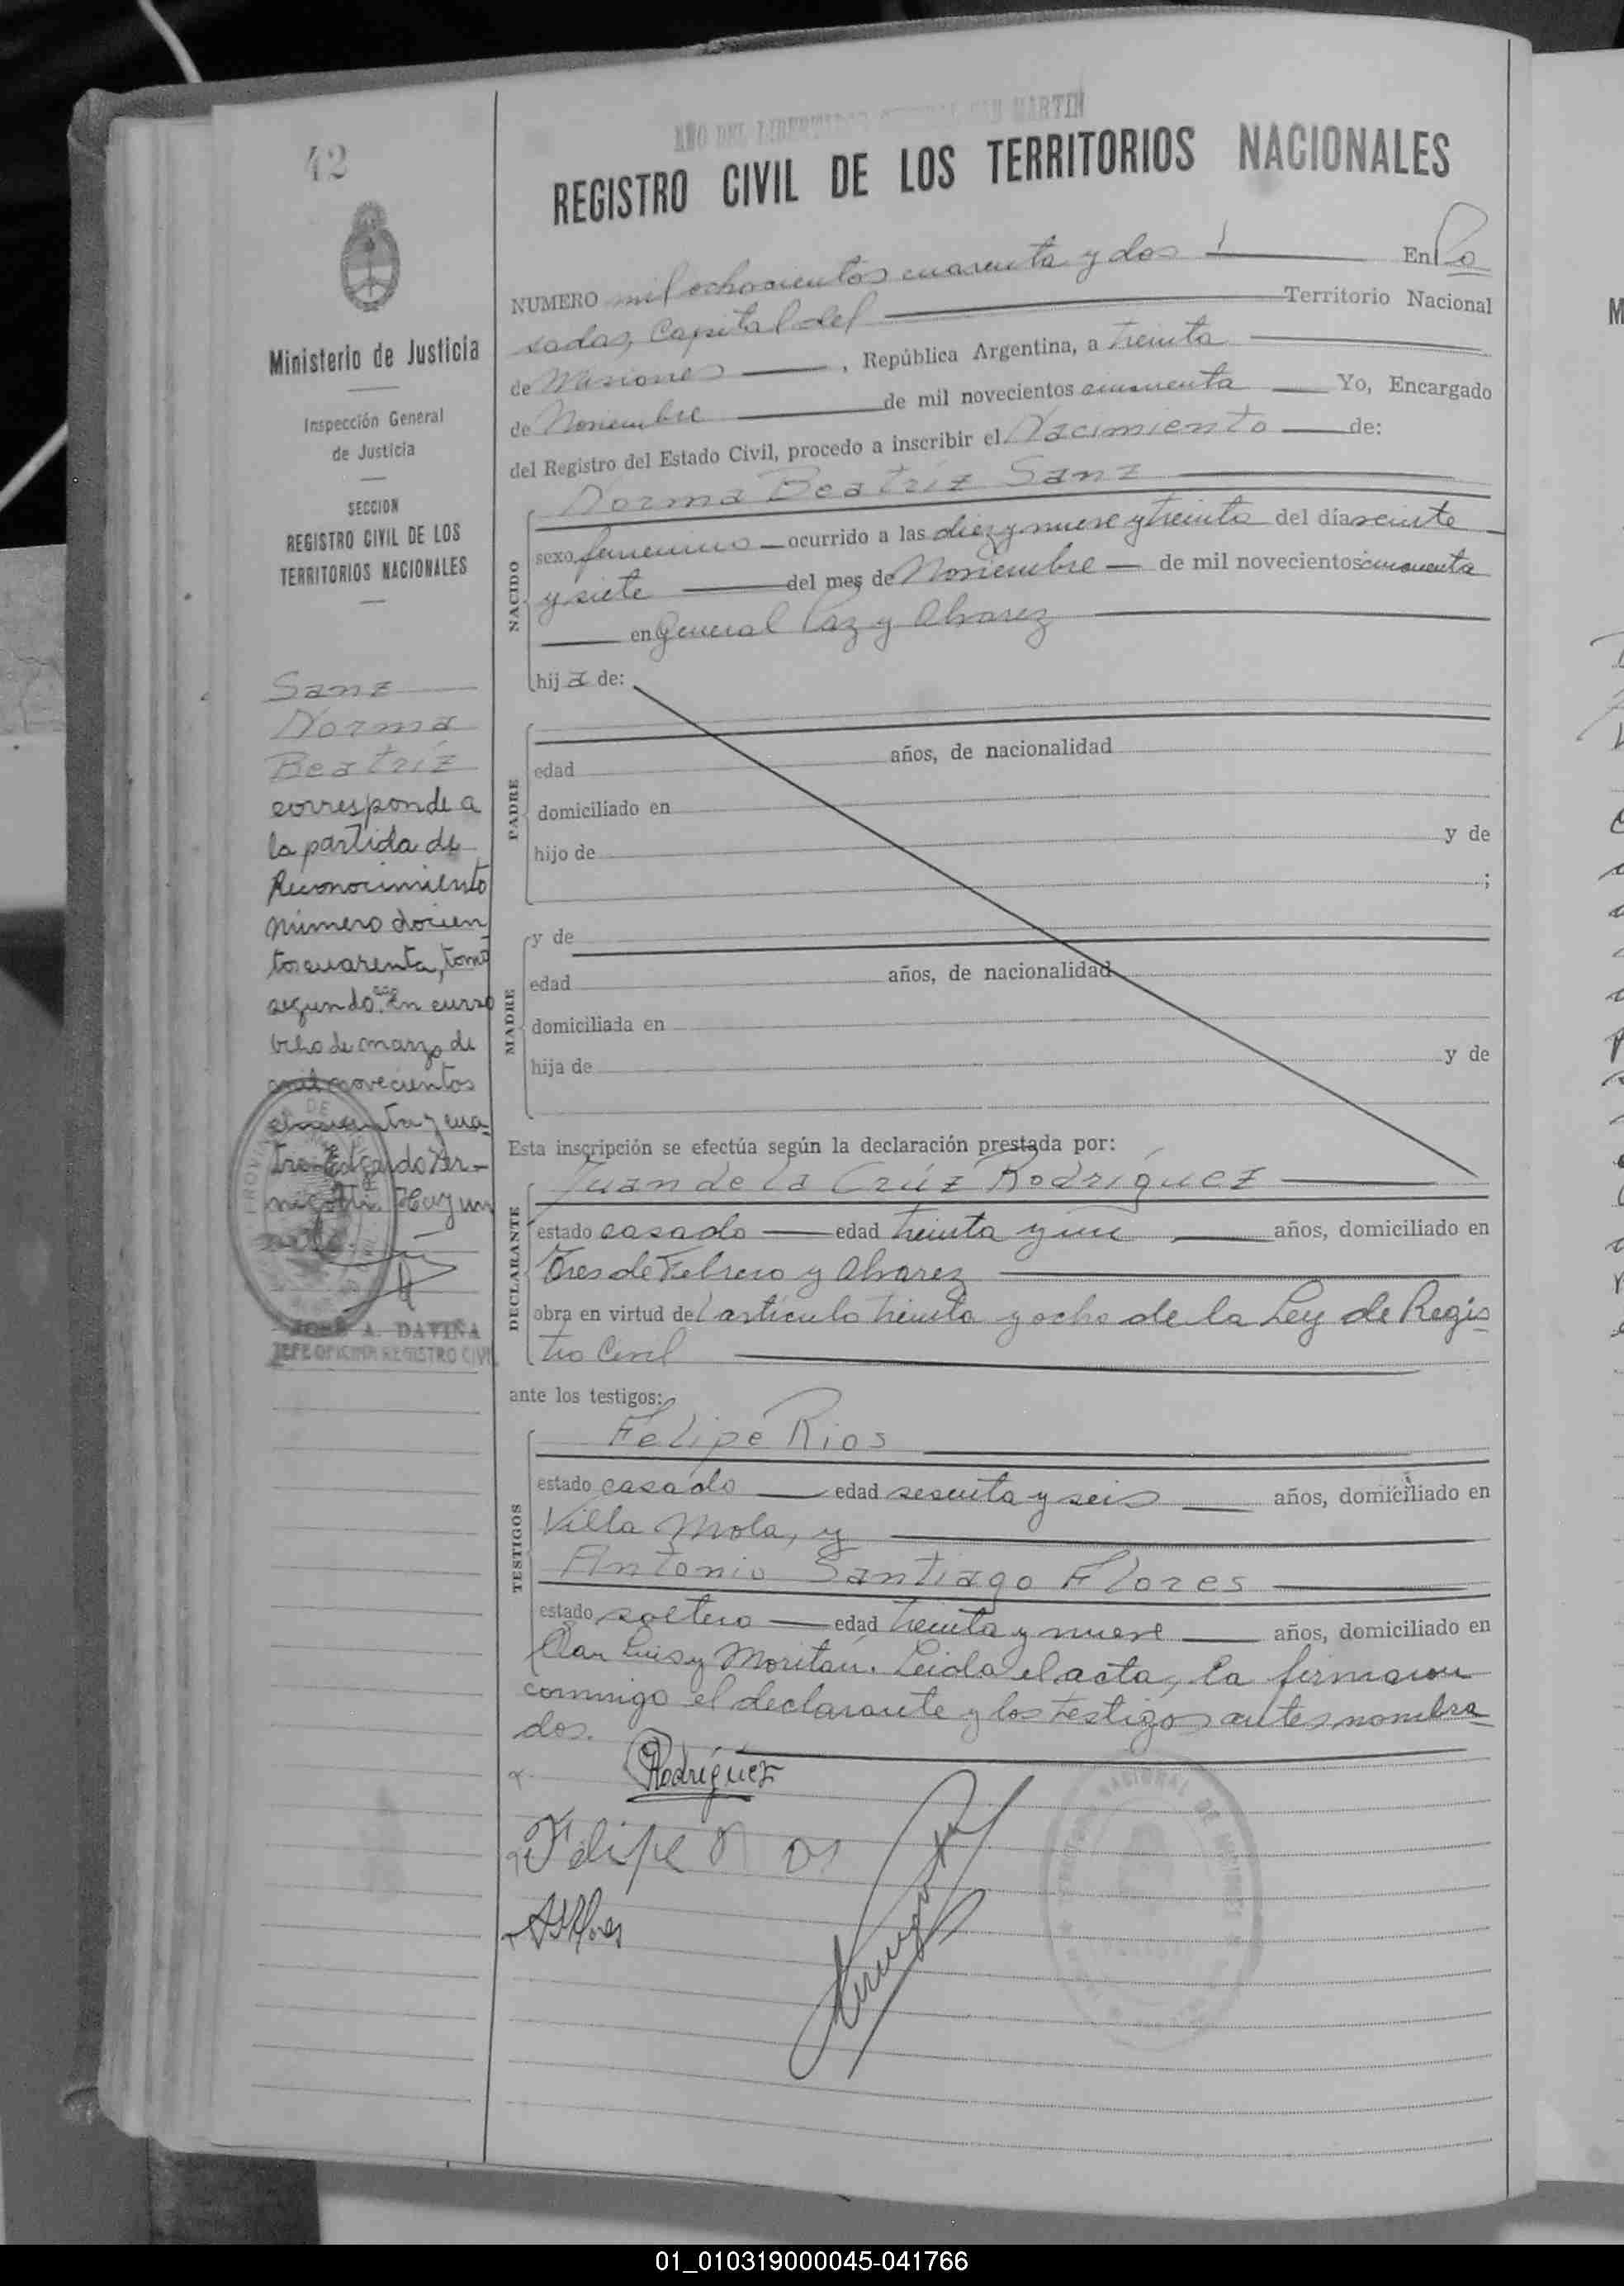 42
Ministerio de Justicia
Inspección General
de Justicia
SECCION
REGISTRO CIVIL DE LOS
TERRITORIOS NACIONALES
Sanz
Norma
Beatríz
corresponde a
la partida de
Reconocimiento
número docien
tos cuarenta, tomo
segundo. En curso
ocho de marzo de
mil novecientos
cincuenta y cua-
tro. Edgardo
Hay un
JOSE A. DAVIÑA
JEFE OFICINA REGISTRO CIVIL
AÑO DEL LIBERTADOR GENERAL SAN MARTIN
REGISTRO CIVIL DE LOS TERRITORIOS NACIONALES
NUMERO mil ochocientos cuarenta y dos En Po
sadas, Capital del Territorio Nacional
de Misiones, República Argentina, a treinta
de Noviembre de mil novecientos cincuenta Yo, Encargado
del Registro del Estado Civil, procedo a inscribir el Nacimiento de:
Norma Beatríz Sanz
NACIDO
sexo femenino ocurrido a las diez y nueve y treinta del día veinte
y siete del mes de Noviembre de mil novecientos cincuenta
en General Paz y Alvarez
hij a de:
PADRE
edad años, de nacionalidad
domiciliado en
hijo de y de
;
MADRE
y de
edad años, de nacionalidad
domiciliada en
hija de y de
Esta inscripción se efectúa según la declaración prestada por:
DECLARANTE
Juan de la Crúz Rodríguez
estado casado edad treinta y un años, domiciliado en
Tres de Febrero y Alvarez
obra en virtud del artículo treinta y ocho de la Ley de Regis
tro Civil
ante los testigos:
TESTIGOS
Felipe Rios
estado casado edad sesenta y seis años, domiciliado en
Villa Mola, y
Antonio Santiago Flores
estado soltero edad treinta y nueve años, domiciliado en
San Luis y Moritán. Leida el acta, la firmaron
conmigo el declarante y los testigos antes nombra
dos.
Rodríguez
Felipe Rios
ASFlores
01_010319000045-041766